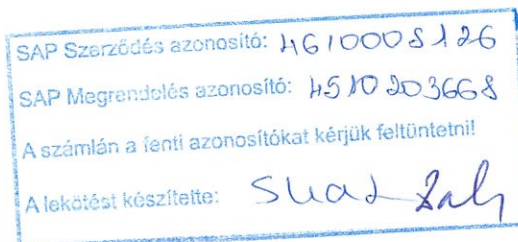 SAP Szerződés azonosító: 4610008126
SAP Megrendelés azonosító: 4510203668
A számlán a fenti azonosítókat kérjük feltüntetni!
A lekötést készítette: